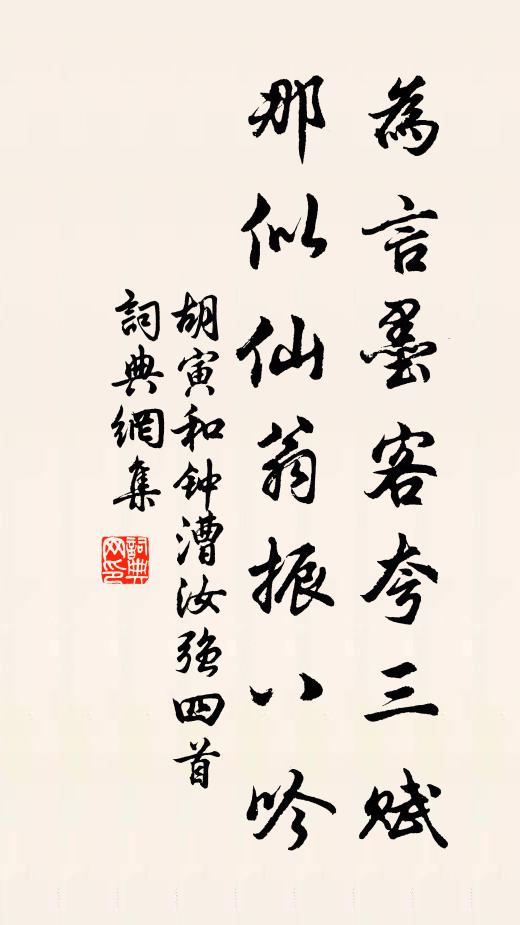 為言墨客夸三赋
那似仙翁振八吟
胡寅和钟漕汝强四首
詞典網集
詞典網印